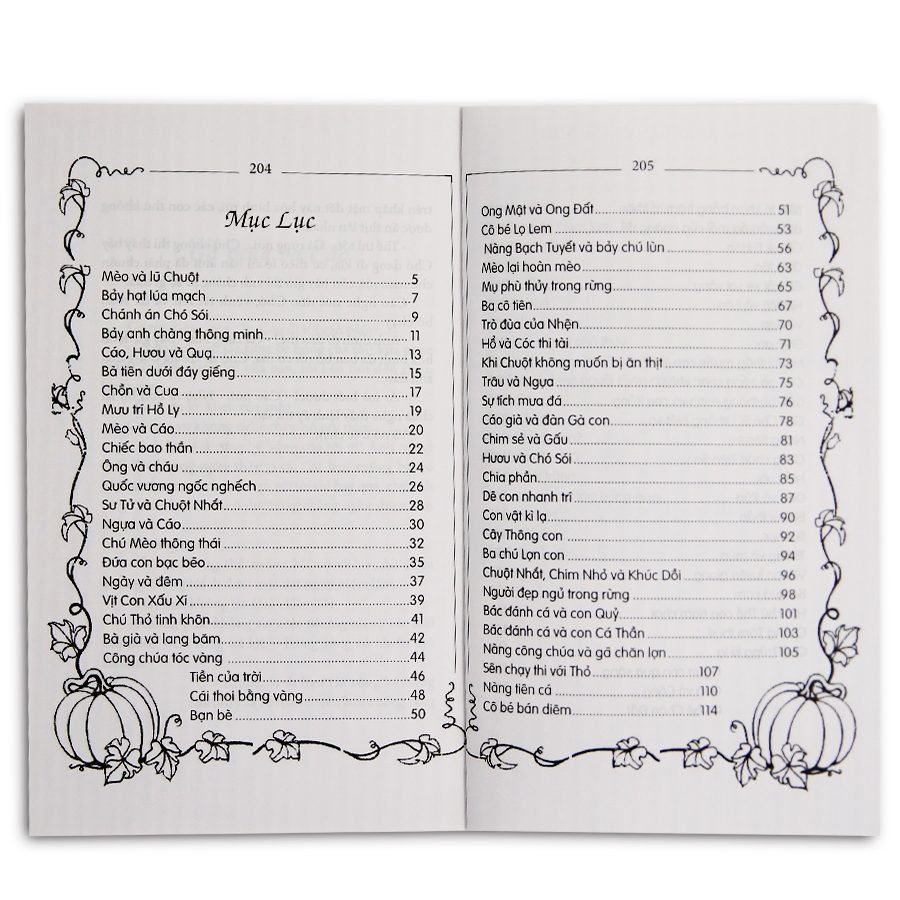 204
Mục Lục
Mèo và lũ Chuột ........ 5
Bảy hạt lúa mạch ........ 7
Chánh án Chó Sói ........ 9
Bảy anh chàng thông minh ........ 11
Cáo, Hươu và Quạ ........ 13
Bà tiên dưới đáy giếng ........ 15
Chồn và Cua ........ 17
Mưu trí Hồ Ly ........ 19
Mèo và Cáo ........ 20
Chiếc bao thần ........ 22
Ông và cháu ........ 24
Quốc vương ngốc nghếch ........ 26
Sư Tử và Chuột Nhắt ........ 28
Ngựa và Cáo ........ 30
Chú Mèo thông thái ........ 32
Đứa con bạc bẽo ........ 35
Ngày và đêm ........ 37
Vịt Con Xấu Xí ........ 39
Chú Thỏ tinh khôn ........ 41
Bà già và lang băm ........ 42
Công chúa tóc vàng ........ 44
Tiền của trời ........ 46
Cái thoi bằng vàng ........ 48
Bạn bè ........ 50
205
Ong Mật và Ong Đất ........ 51
Cô bé Lọ Lem ........ 53
Nàng Bạch Tuyết và bảy chú lùn ........ 56
Mèo lại hoàn mèo ........ 63
Mụ phù thủy trong rừng ........ 65
Ba cô tiên ........ 67
Trò đùa của Nhện ........ 70
Hổ và Cóc thi tài ........ 71
Khi Chuột không muốn bị ăn thịt ........ 73
Trâu và Ngựa ........ 75
Sự tích mưa đá ........ 76
Cáo già và đàn Gà con ........ 78
Chim sẻ và Gấu ........ 81
Hươu và Chó Sói ........ 83
Chia phần ........ 85
Dê con nhanh trí ........ 87
Con vật kì lạ ........ 90
Cây Thông con ........ 92
Ba chú Lợn con ........ 94
Chuột Nhắt, Chim Nhỏ và Khúc Dồi ........ 96
Người đẹp ngủ trong rừng ........ 98
Bác đánh cá và con Quỷ ........ 101
Bác đánh cá và con Cá Thần ........ 103
Nàng công chúa và gã chăn lợn ........ 105
Sên chạy thi với Thỏ ........ 107
Nàng tiên cá ........ 110
Cô bé bán diêm ........ 114